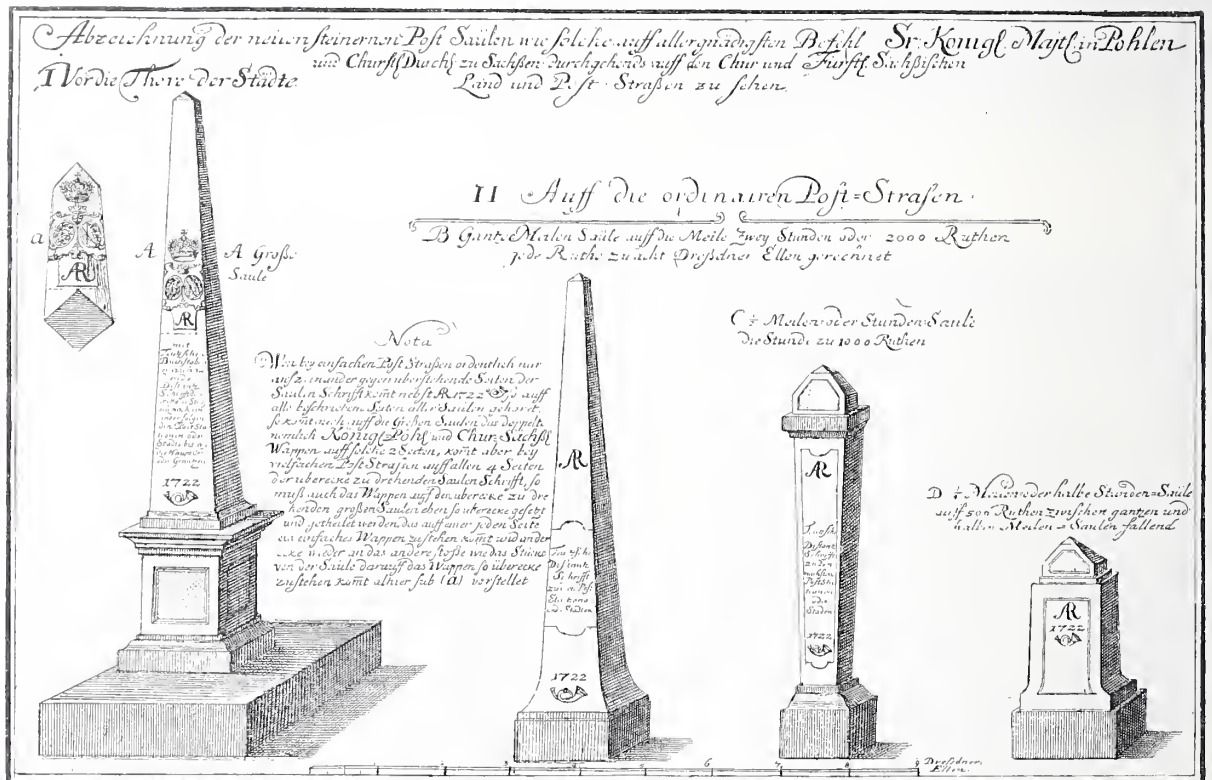 Abzeichnung der neuen steinernen Post Säulen wie solche auff allergnädigsten Befehl Sr. Königl. Majtt. in Pohlen
und Churfl. Durchl. zu Sachßen durchgehends auff den Chur und Fürstl. Sächßischen
Land und Post-Straßen zu sehen.
I Vor die Thore der Städte.
II Auff die ordinairen Post=Straßen.
B Gantze Meilen Säule auff die Meile Zwey Stunden oder 2000 Ruthen
jede Ruthe zu acht Dreßdner Ellen gerechnet
a
A
A Große
Säule
AR
AR
mit
1722
Nota
Weil bey einfachen Post Straßen ordentlich nur
auf 2. einander gegen überstehende Seiten der
Säulen Schrifft komt nebst AR 1722 auff
alle beschriebene Seiten aller Säulen gehöret
so komt auch auff die Großen Säulen das doppelte
nemlich Königl. Pohl. und Chur=Sächßl.
Wappen auff solche 2 Seiten, komt aber bey
vielfachen Post Straßen auff allen 4 Seiten
der übereck zu drehenden Säulen Schrifft, so
muß auch das Wappen auff den übereck zu dre
henden großen Säulen eben so übereck gesetzt
und getheilet werden, das auff einer jeden Seite
ein einfaches Wappen zu stehen komt und an der
ecke wieder an das andere stoße wie das Stück
von der Säule darauff das Wappen so übereck
zu stehen komt alhier sub (a) vorstellet
AR
Distantz
Schrifft
1722
C ½ Meilen oder Stunden Säule
die Stunde zu 1000 Ruthen
AR
Distantz
Schrifft
1722
D ¼ Meilen oder halbe Stunden=Säule
auff 500 Ruthen zwischen gantzen und
halben Meilen=Säulen fallend
AR
1722
Dreßdner
Ellen.